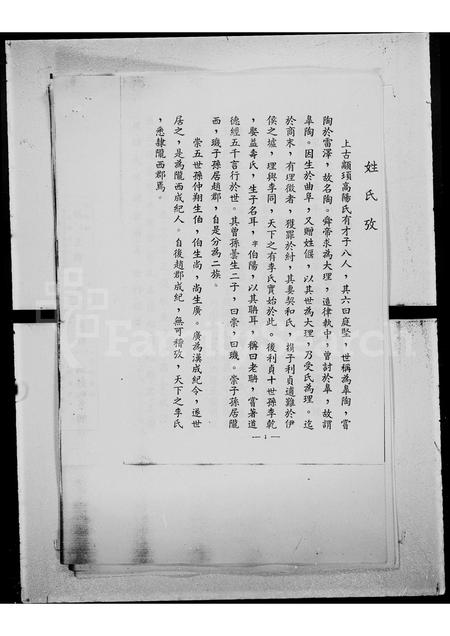 姓氏攷
上古顓頊高陽氏有才子八人，其六曰庭堅，世稱為皐陶，嘗
陶於雷澤，故名陶。舜帝求為大理，造律執中，曾討於皐，故謂
皐陶。因生於曲阜，又贈姓偃，以其世為大理，乃受氏為理。迄
於商末，有理徵者，獲罪於紂，其妻契和氏，携子利貞逋難於伊
侯之墟，理與李同，天下之有李氏實始於此。後利貞十世孫李乾
，娶益壽氏，生子名耳，字伯陽，以其聃耳，稱曰老聃，嘗著道
德經五千言行於世。其曾孫曇生二子，曰崇，曰璣。崇子孫居隴
西，璣子孫居趙郡，自是分為二族。
崇五世孫仲翔生伯，伯生尚，尚生廣。廣為漢成紀令，遂世
居之，是為隴西成紀人。自後趙郡成紀，無可稽攷，天下之李氏
，悉隸隴西郡焉。
— 1 —
FamilySearch